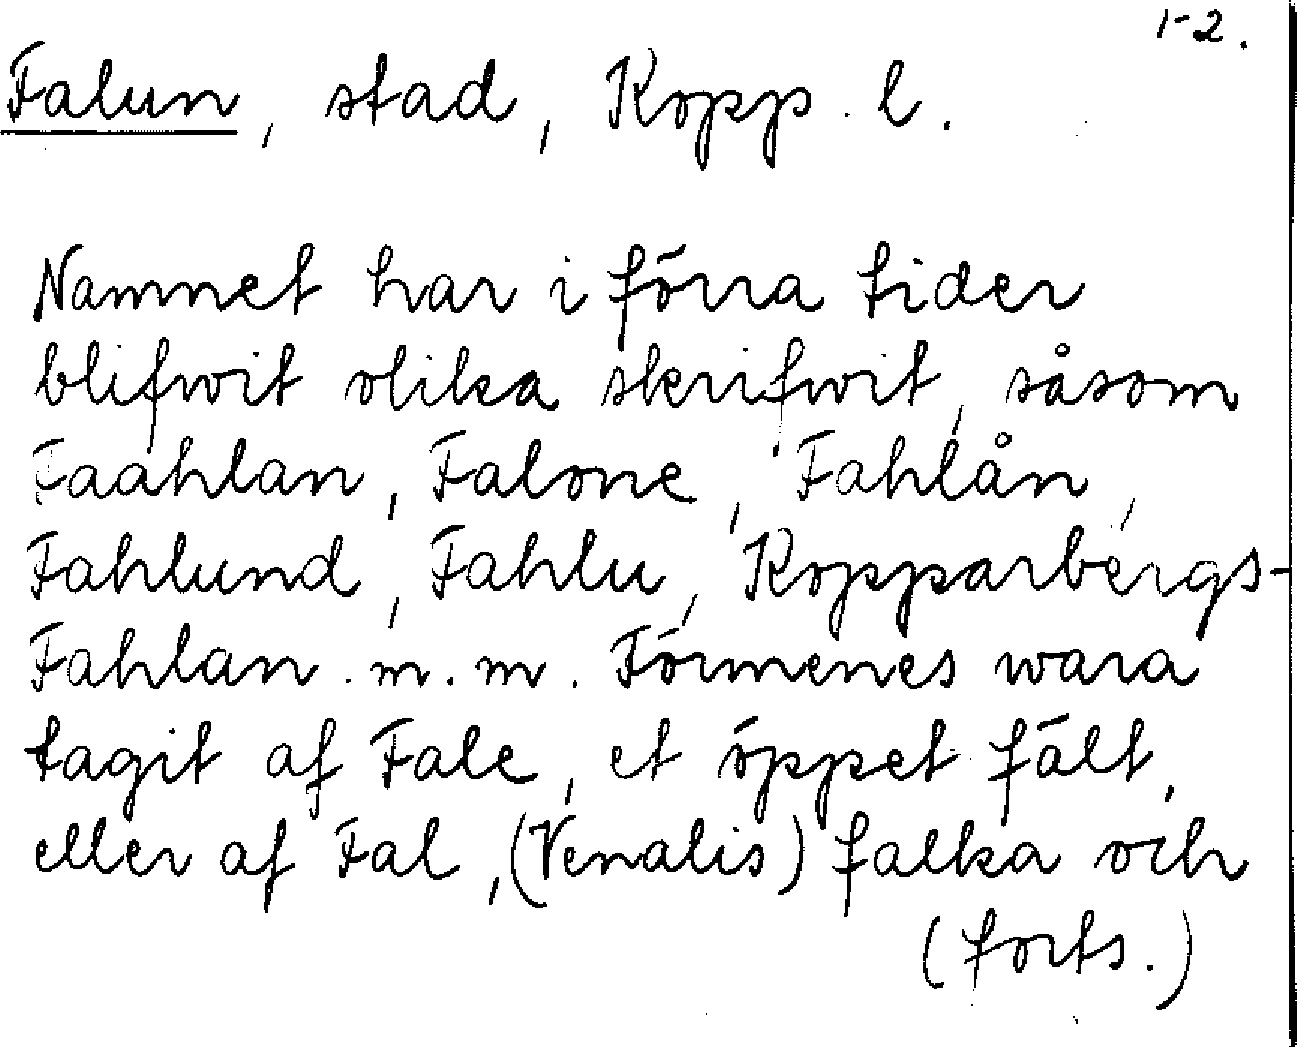 1-2.
Falun, stad, Kopp. l.
Namnet har i förra tider
blifwit olika skrifwit, såsom
Faahlan, Falone, Fahlån,
Fahlund, Fahlu, Kopparbergs-
Fahlan. m. m. Förmenes wara
tagit af Fale, et öppet fält,
eller af Fal, (Venalis) falka och
(forts.)